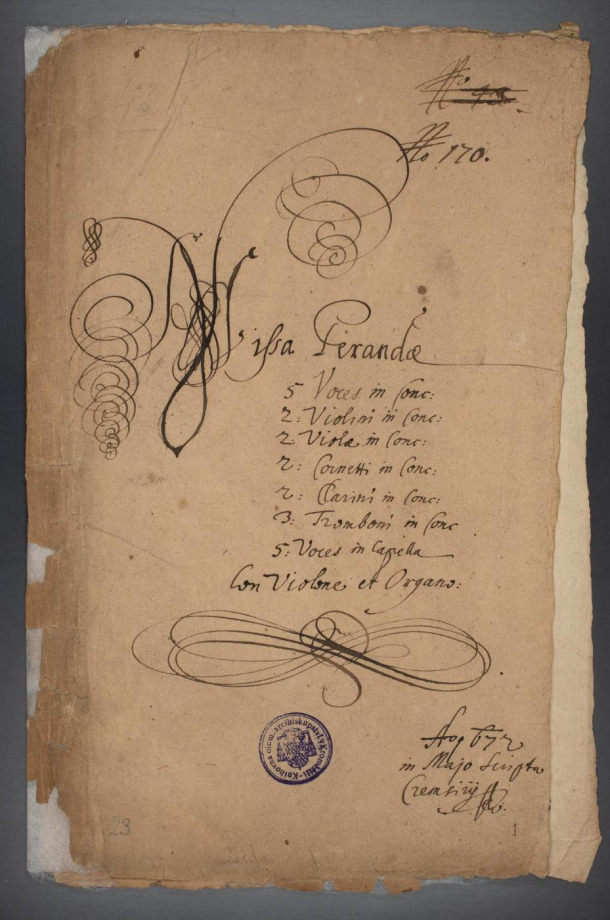 No 43.
No 170.
Missa Perandæ
5 Voces in Conc:
2: Violini in Conc:
2: Violæ in Conc:
2: Cornetti in Conc:
2: Clarini in Conc:
3: Tromboni in Conc
5: Voces in Capella
Con Violone et Organo:
Knihovna olom. arcibiskupství v Kroměříži
Ao 1672
in Majo Scripta
Cremsirij
23
1